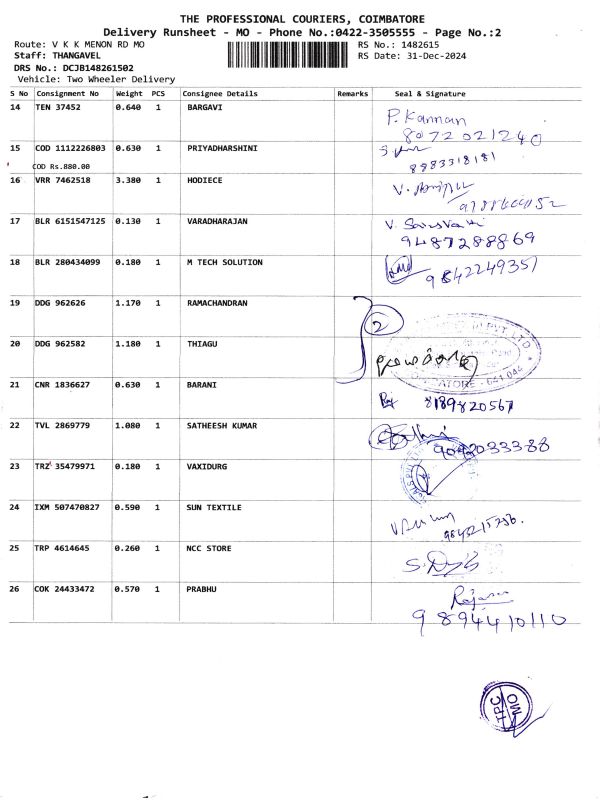 THE PROFESSIONAL COURIERS, COIMBATORE
Delivery Runsheet - MO - Phone No.:0422-3505555 - Page No.:2
Route: V K K MENON RD MO RS No.: 1482615
Staff: THANGAVEL RS Date: 31-Dec-2024
DRS No.: DCJB148261502
Vehicle: Two Wheeler Delivery
S No Consignment No Weight PCS Consignee Details Remarks Seal & Signature
14 TEN 37452 0.640 1 BARGAVI
P. Kannan
8072021240
15 COD 1112226803 0.630 1 PRIYADHARSHINI
COD Rs.880.00
8983318181
16 VRR 7462518 3.380 1 HODIECE
17 BLR 6151547125 0.130 1 VARADHARAJAN
9487288869
18 BLR 280434099 0.180 1 M TECH SOLUTION
9842249357
19 DDG 962626 1.170 1 RAMACHANDRAN
2
20 DDG 962582 1.180 1 THIAGU
PVT LTD
641 044
21 CNR 1836627 0.630 1 BARANI
8189820567
22 TVL 2869779 1.080 1 SATHEESH KUMAR
9042033388
23 TRZ 35479971 0.180 1 VAXIDURG
24 IXM 507470827 0.590 1 SUN TEXTILE
25 TRP 4614645 0.260 1 NCC STORE
26 COK 24433472 0.570 1 PRABHU
9894410110
TPC
MO